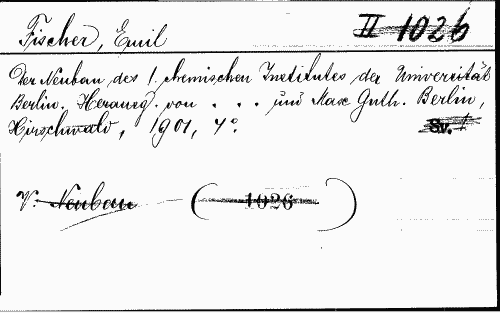 Fischer, Emil II 1026
Der Neubau des 1. chemischen Institutes der Universität
Berlin. Herausg. von . . . und Max Guth. Berlin,
Hirschwald, 1901, 4°. Sv. 1
V. Neubau (1026)